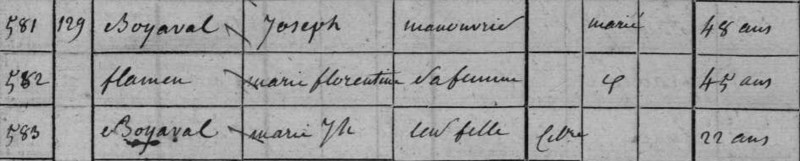 581 129 Boyaval Joseph manouvrier marié 48 ans
582 flamen marie florentine Sa femme φ 45 ans
583 Boyaval marie Jh leur fille Celbre 22 ans